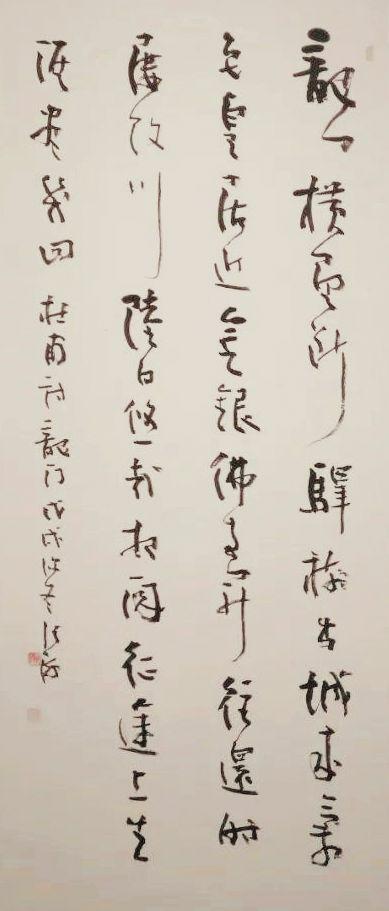 龍門橫野斷驛樹出城來氣
色皇居近金銀佛寺開往還時
屢改川陸日悠哉相閱征途上生
涯盡幾回 杜甫詩龍門戊戌